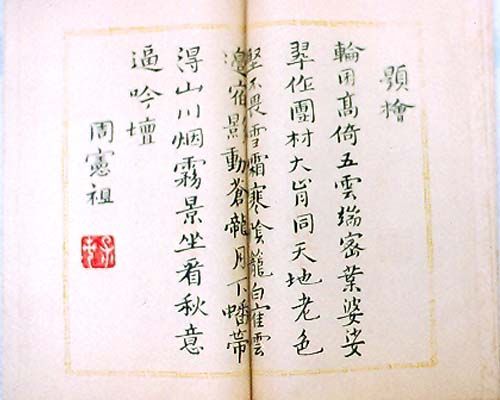 題檜
輪囷高倚五雲端密葉婆娑
翠作團材大肯同天地老色
堅不畏雪霜寒陰籠白隺雲
邊宿景動蒼龍月下蟠帶
得山川烟霧景坐看秋意
逼吟壇
周憲祖